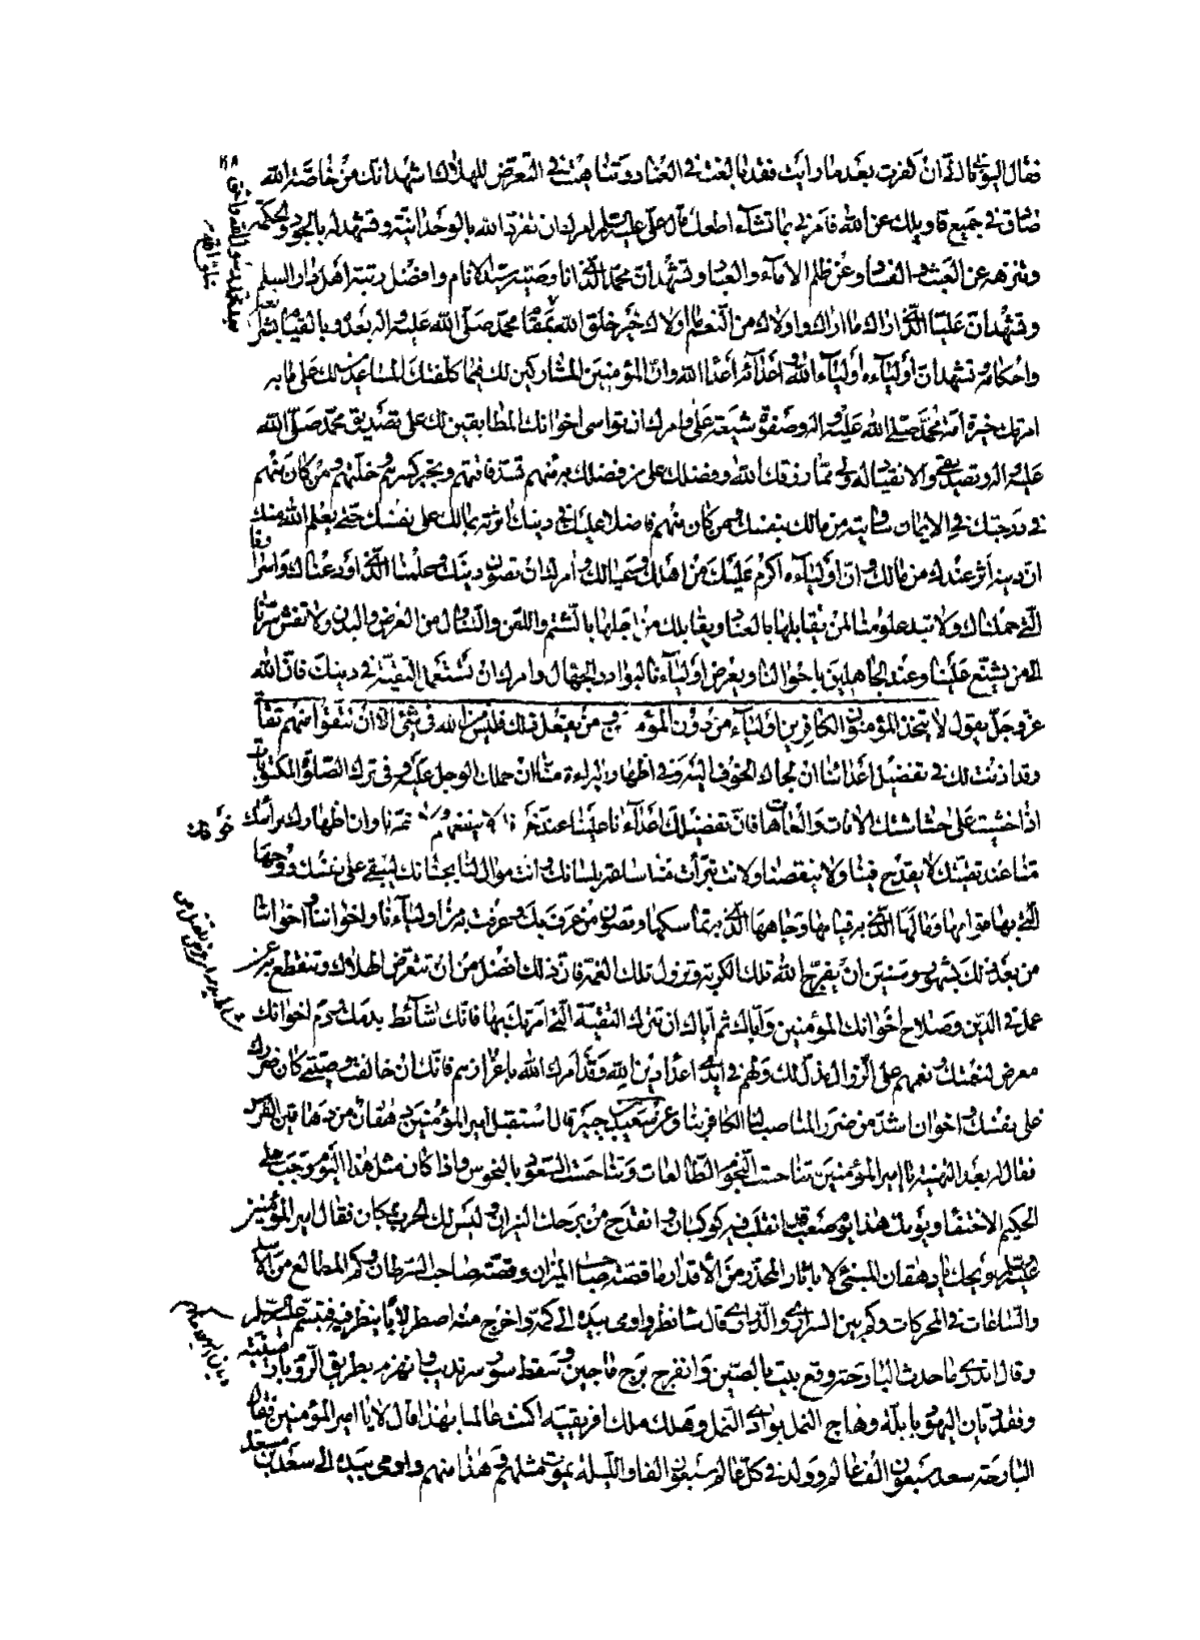 فقال اليوناني لئن كفرت بعد ما رأيت فقد بالغت في العناد وتناهيت في التعرض للهلاك اشهد انك من خاصة الله
صادق في جميع اقاويلك عن الله فامرني بما تشاء اطعك قال علي عليه السلم امرك ان تفرد الله بالوحدانية وتشهد له بالجود والحكمة
وتنزهه عن العبث والفساد وعن ظلم الاماء والعباد وتشهد ان محمدا الذي انا وصيه سيد الانام وافضل رتبة اهل دار السلم
وتشهد ان عليا الذي اراك ما اراك واولاك من النعم ما اولاك خير خلق الله بعد محمد صلى الله عليه واله بعده وبالقيام بشرايعه
واحكامه وتشهد ان أولياءه أولياء الله وأعداءه أعداء الله وان المؤمنين المشاركين لك فيما كلفتك المساعدين لك على ما به
امرتك خيرة امة محمد صلى الله عليه واله وصفوة شيعة علي وامرك ان تواسي اخوانك المطابقين لك على تصديق محمد صلى الله
عليه واله وتصديقي والانقياد له ولي مما رزقك الله وفضلك على من فضلك به منهم تسد فاقتهم وتجبر كسرهم وخلتهم ومن كان منهم
في درجتك في الايمان ساويته من مالك بنفسك ومن كان منهم فاضلا عليك في دينك اثرته بمالك على نفسك حتى يعلم الله منك
ان دينه آثر عندك من مالك وان أولياءه اكرم عليك من اهلك وعيالك وامرك ان تصون دينك وعلمنا الذي اودعناك واسرارنا
التي حملناك ولا تبد علومنا لمن يقابلها بالعناد ويقابلك من اجلها بالشتم واللعن والتناول من العرض والبدن ولا تفش سرنا
الى من يشنع علينا وعند الجاهلين باحوالنا ويعرض أولياءنا لبوادر الجهال وامرك ان تستعمل التقية في دينك فان الله
عز وجل يقول لا يتخذ المؤمنون الكافرين أولياء من دون المؤمنين ومن يفعل ذلك فليس من الله في شيء الا ان تتقوا منهم تقاة
وقد اذنت لك في تفضيل اعدائنا ان لجاك الخوف اليه وفي اظهار البراءة منا ان حملك الوجل عليه وفي ترك الصلوة المكتوبات
اذا خشيت على حشاشتك الافات والعاهات فان تفضيلك اعداءنا علينا عند خوفك لا ينفعهم ولا يضرنا وان اظهارك براءتك
منا عند تقيتك لا يقدح فينا ولا ينقصنا ولان تبرأت منا ساعة بلسانك وانت موال لنا بجنانك لتبقي على نفسك روحها
التي بها قوامها ومالها الذي به قيامها وجاهها الذي به تماسكها وتصون من عرف بك وعرفت به من أوليائنا واخواننا واخواتنا
من بعد ذلك بشهور وسنين ان يفرج الله تلك الكربة وتزول تلك الغمة فان ذلك افضل من ان تتعرض للهلاك وتنقطع به عن
عمل في الدين وصلاح اخوانك المؤمنين واياك ثم اياك ان تترك التقية التي امرتك بها فانك شائط بدمك ودم اخوانك
معرض لنعمتك ونعمهم على الزوال مذل لك ولهم في ايدي اعداء دين الله وقد امرك الله باعزازهم فانك ان خالفت وصيتي كان ضررك
على نفسك واخوانك اشد من ضرر المناصب لنا الكافر بنا وعن سعيد بن جبير قال استقبل امير المؤمنين دهقان من دهاقين الفرس
فقال له بعد التهنية يا امير المؤمنين تناحست النجوم الطالعات وتناحست السعود بالنحوس واذا كان مثل هذا اليوم وجب على
الحكيم الاختفاء ويومك هذا يوم صعب قد انقلب فيه كوكبان وانقدح من برجك النيران وليس لك الحرب بمكان فقال امير المؤمنين
عليه السلم ويحك يا دهقان المنبئ بالاثار المحذر من الأقدار ما قصة صاحب الميزان وقصة صاحب السرطان وكم المطالع من الاسد
والساعات في المحركات وكم بين السراري والدراري قال سانظر واومى بيده الى كمه واخرج منه اصطرلابا ينظر فيه فتبسم عليه السلم
وقال اتدري ما حدث البارحة وقع بيت بالصين وانفرج برج ماجين وسقط سور سرنديب وانهزم بطريق الروم بارمينية
وفقد ديان اليهود بابلة وهاج النمل بوادي النمل وهلك ملك افريقيه اكنت عالما بهذا قال لا يا امير المؤمنين فقال
البارحة سعد سبعون الف عالم وولد في كل عالم سبعون الفا والليلة يموت مثلهم وهذا منهم واومى بيده الى سعد بن مسعدة